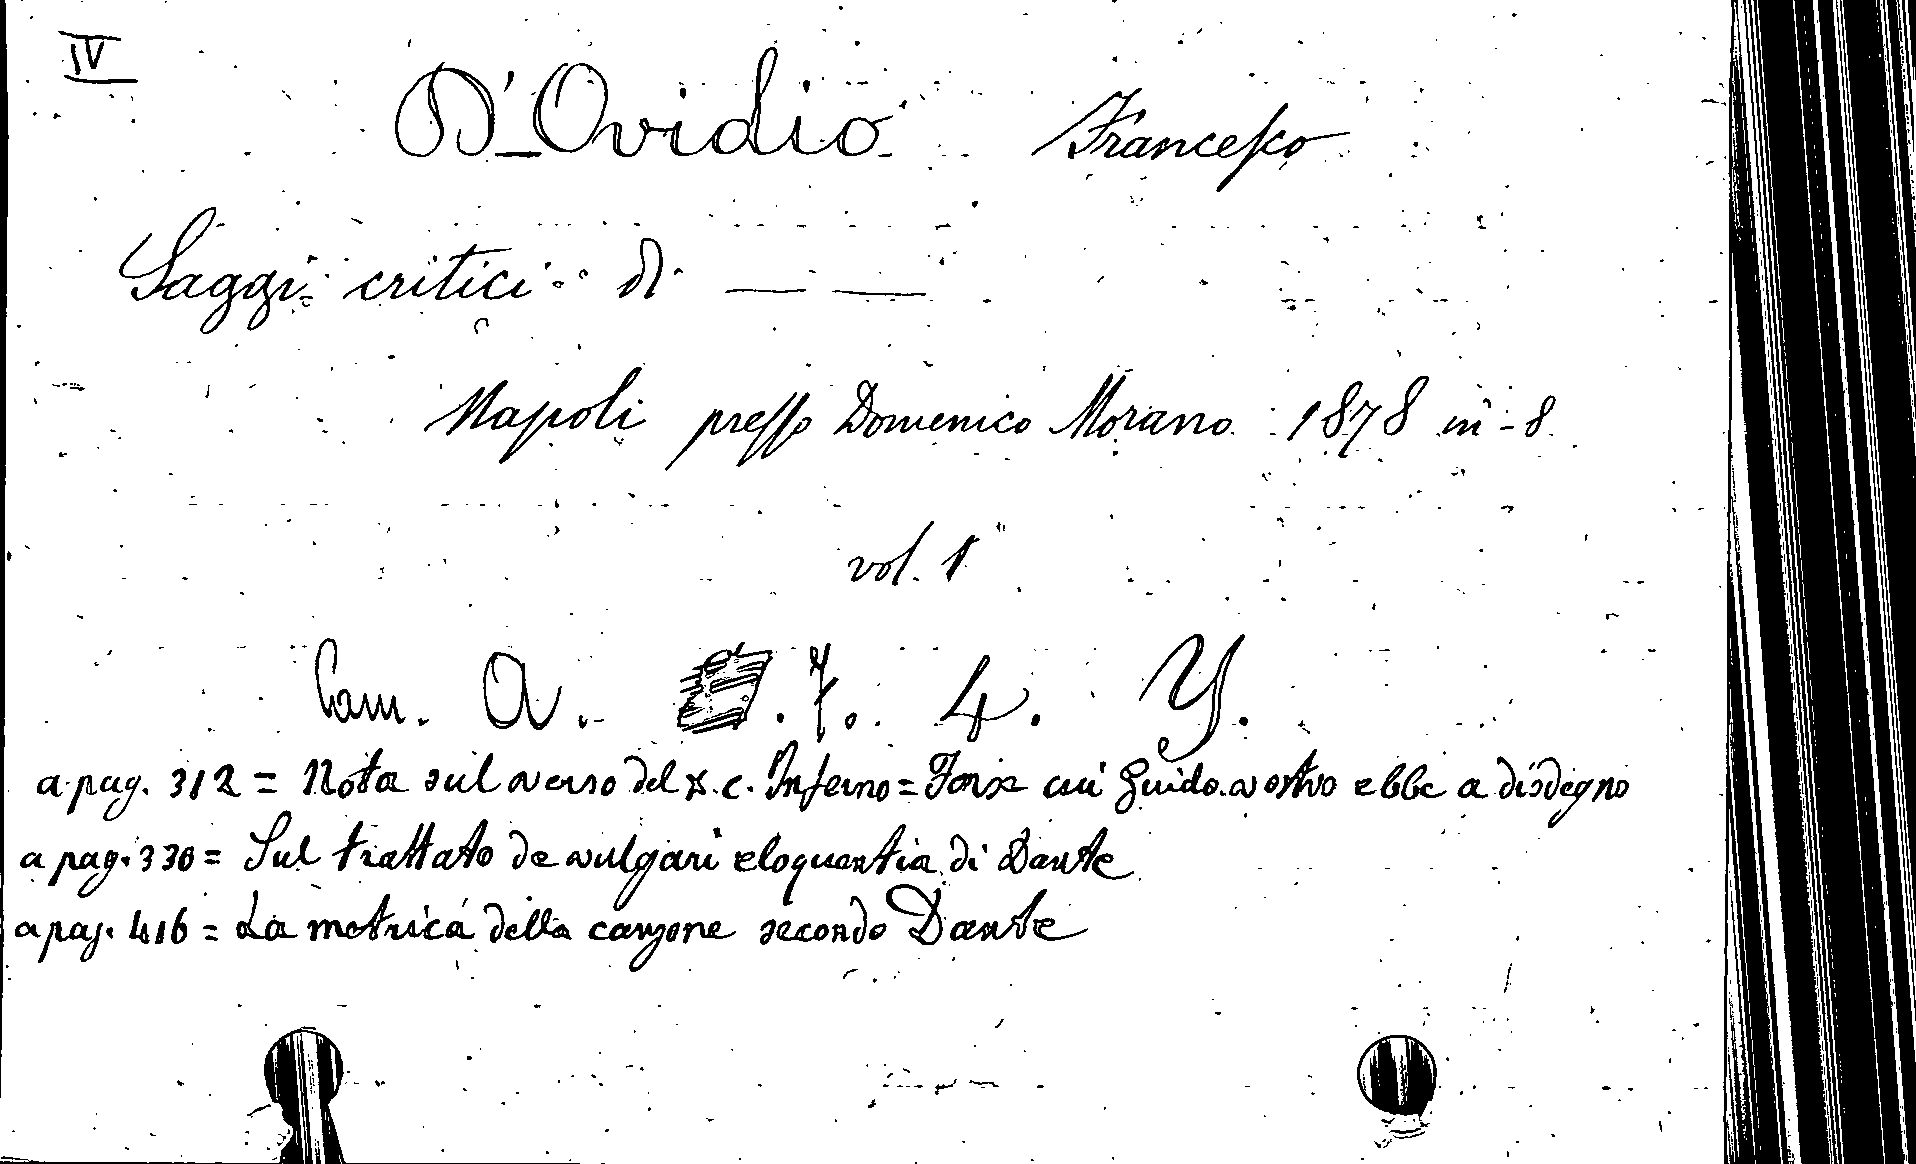 IV
D'Ovidio Francesco
Saggi critici di — —
Napoli presso Domenico Morano 1878 in-8
vol. 1
Cam. A. 7. 4. Y.
a pag. 312 = Nota sul verso del X. c. Inferno = Forse cui Guido vostro ebbe a disdegno
a pag. 330 = Sul trattato de vulgari eloquentia di Dante
a pag. 416 = La metrica della canzone secondo Dante